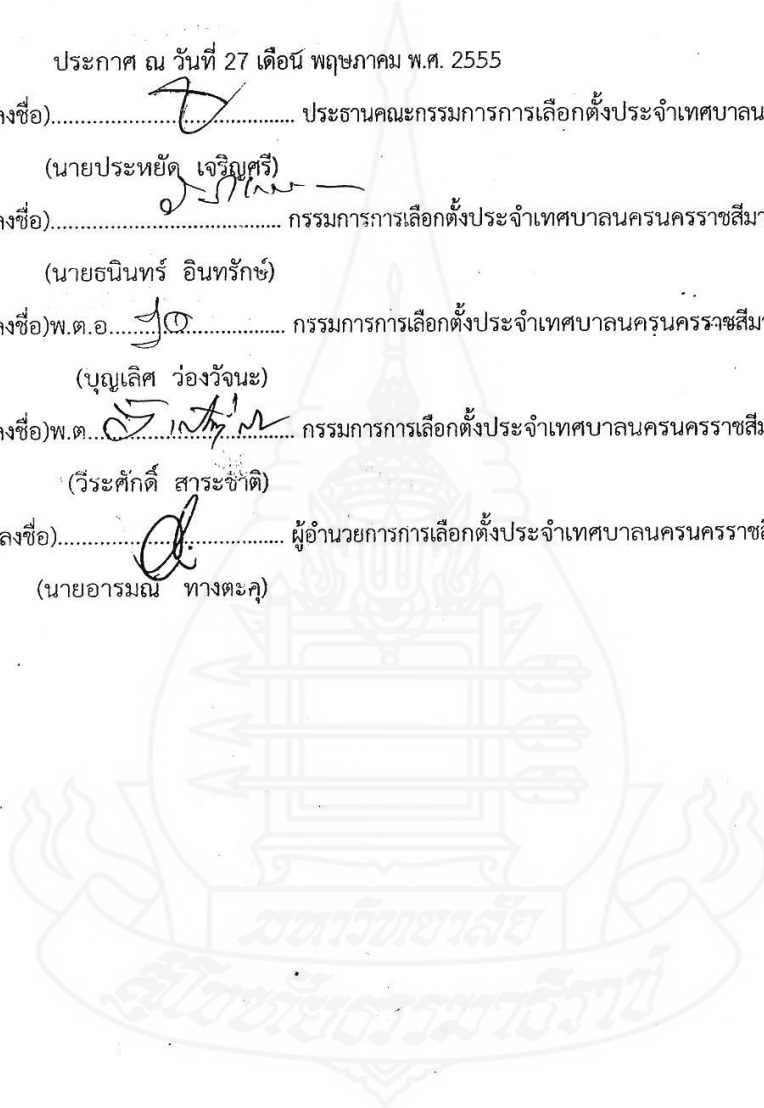 ประกาศ ณ วันที่ 27 เดือน พฤษภาคม พ.ศ. 2555
ลงชื่อ)........................................ ประธานคณะกรรมการการเลือกตั้งประจำเทศบาลน
(นายประหยัด เจริญศรี)
ลงชื่อ)........................................ กรรมการการเลือกตั้งประจำเทศบาลนครนครราชสีมา
(นายธนินทร์ อินทรักษ์)
ลงชื่อ)พ.ต.อ............................ กรรมการการเลือกตั้งประจำเทศบาลนครนครราชสีมา
(บุญเลิศ ว่องวัจนะ)
ลงชื่อ)พ.ต................................ กรรมการการเลือกตั้งประจำเทศบาลนครนครราชสีม
(วีระศักดิ์ สาระชาติ)
ลงชื่อ)........................................ ผู้อำนวยการการเลือกตั้งประจำเทศบาลนครนครราชสี
(นายอารมณ์ ทางตะคุ)
มหาวิทยาลัย
สุโขทัยธรรมาธิราช